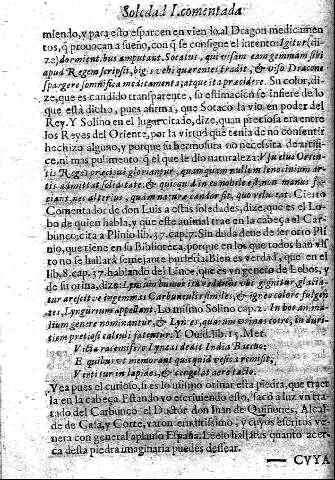 Soledad I. comentada
miendo, y para esto esparcen en vien load Dragon medicamen
tos, q̃ prouocan a sueño, con q̃ se consigue el intento: Igitur (di
ze) dormient. bus amputant. Socatus, qui visam eam gemmam sibi
apud Regem scripsit, bigis vehi quarentes tradit, & viso Dracone
spargere somnifica medicamenta, atque ita præcidere. Su color, di-
ze, que es candido transparente, su estimacion se infiere de lo
que està dicho, pues afirma, que Sotaco la vio en poder del
Rey. Y Solino en el lugar citado, dize, quan preciosa era entre
los Reyes del Oriente, por la virtud que tenia de no consentir
hechizo alguno, y porque su hermosura no necessita de artifi-
ce, ni mas pulimento q̃ el que le dio naturaleza: Vsu eius Orien-
tis Reges præcipuè gloriantur, quanquam nullum lenocinium ar-
tis admittat soliditate, & quicquid in eo nobile est, non manus fa-
ciant, nec alterius, quàm naturæ candor sit, quo relucent. Cierto
Comentador de don Luis a estas soledades, dize, que es el Lo-
bo de quien habla, y que este animal trae en la cabeça el Car-
bunco, cita a Plinio lib. 37. cap. 7. Sin duda deue de ser otro Pli
nio, que tiene en su Biblioteca, porque en los que todos han visto
no se hallarà semejante burleria: Bien es verdad, que en el
lib. 8. cap. 37. hablando del Lince, que es vn genero de Lobos, y
de su orina, dize: Lyncum humor ita redditus vbi gignitur glacia-
tur, arescit ve in gemmas Carbunculis similes, & igneo colore fulgen
tes, Lyncurium appellant. Lo mismo Solino cap. 2. In hoc animalium
genere nominantur, & Lynces, quarum vrinas coire, in duri-
tiem pretiosi calculi fatentur. Y Ouid. lib. 15. Met.
Victa racemifero Lyncas dedit India Baccho:
E quibus vt memorant quicquid vesica remisit,
Vertitur in lapides, & congelat aere tacto.
Vea pues el curioso, si es lo mismo orinar esta piedra, que traer
la en la cabeça. Estando yo escriuiendo esto, sacò a luz vn tra-
tado del Carbunco el Doctor don Iuan de Quiñones, Alcalde
de Casa, y Corte, varon eruditissimo, y cuyos escritos ve-
nera con general aplauso España. Leelo hallaràs quanto acer-
ca desta piedra imaginaria puedes desear.
CVYA